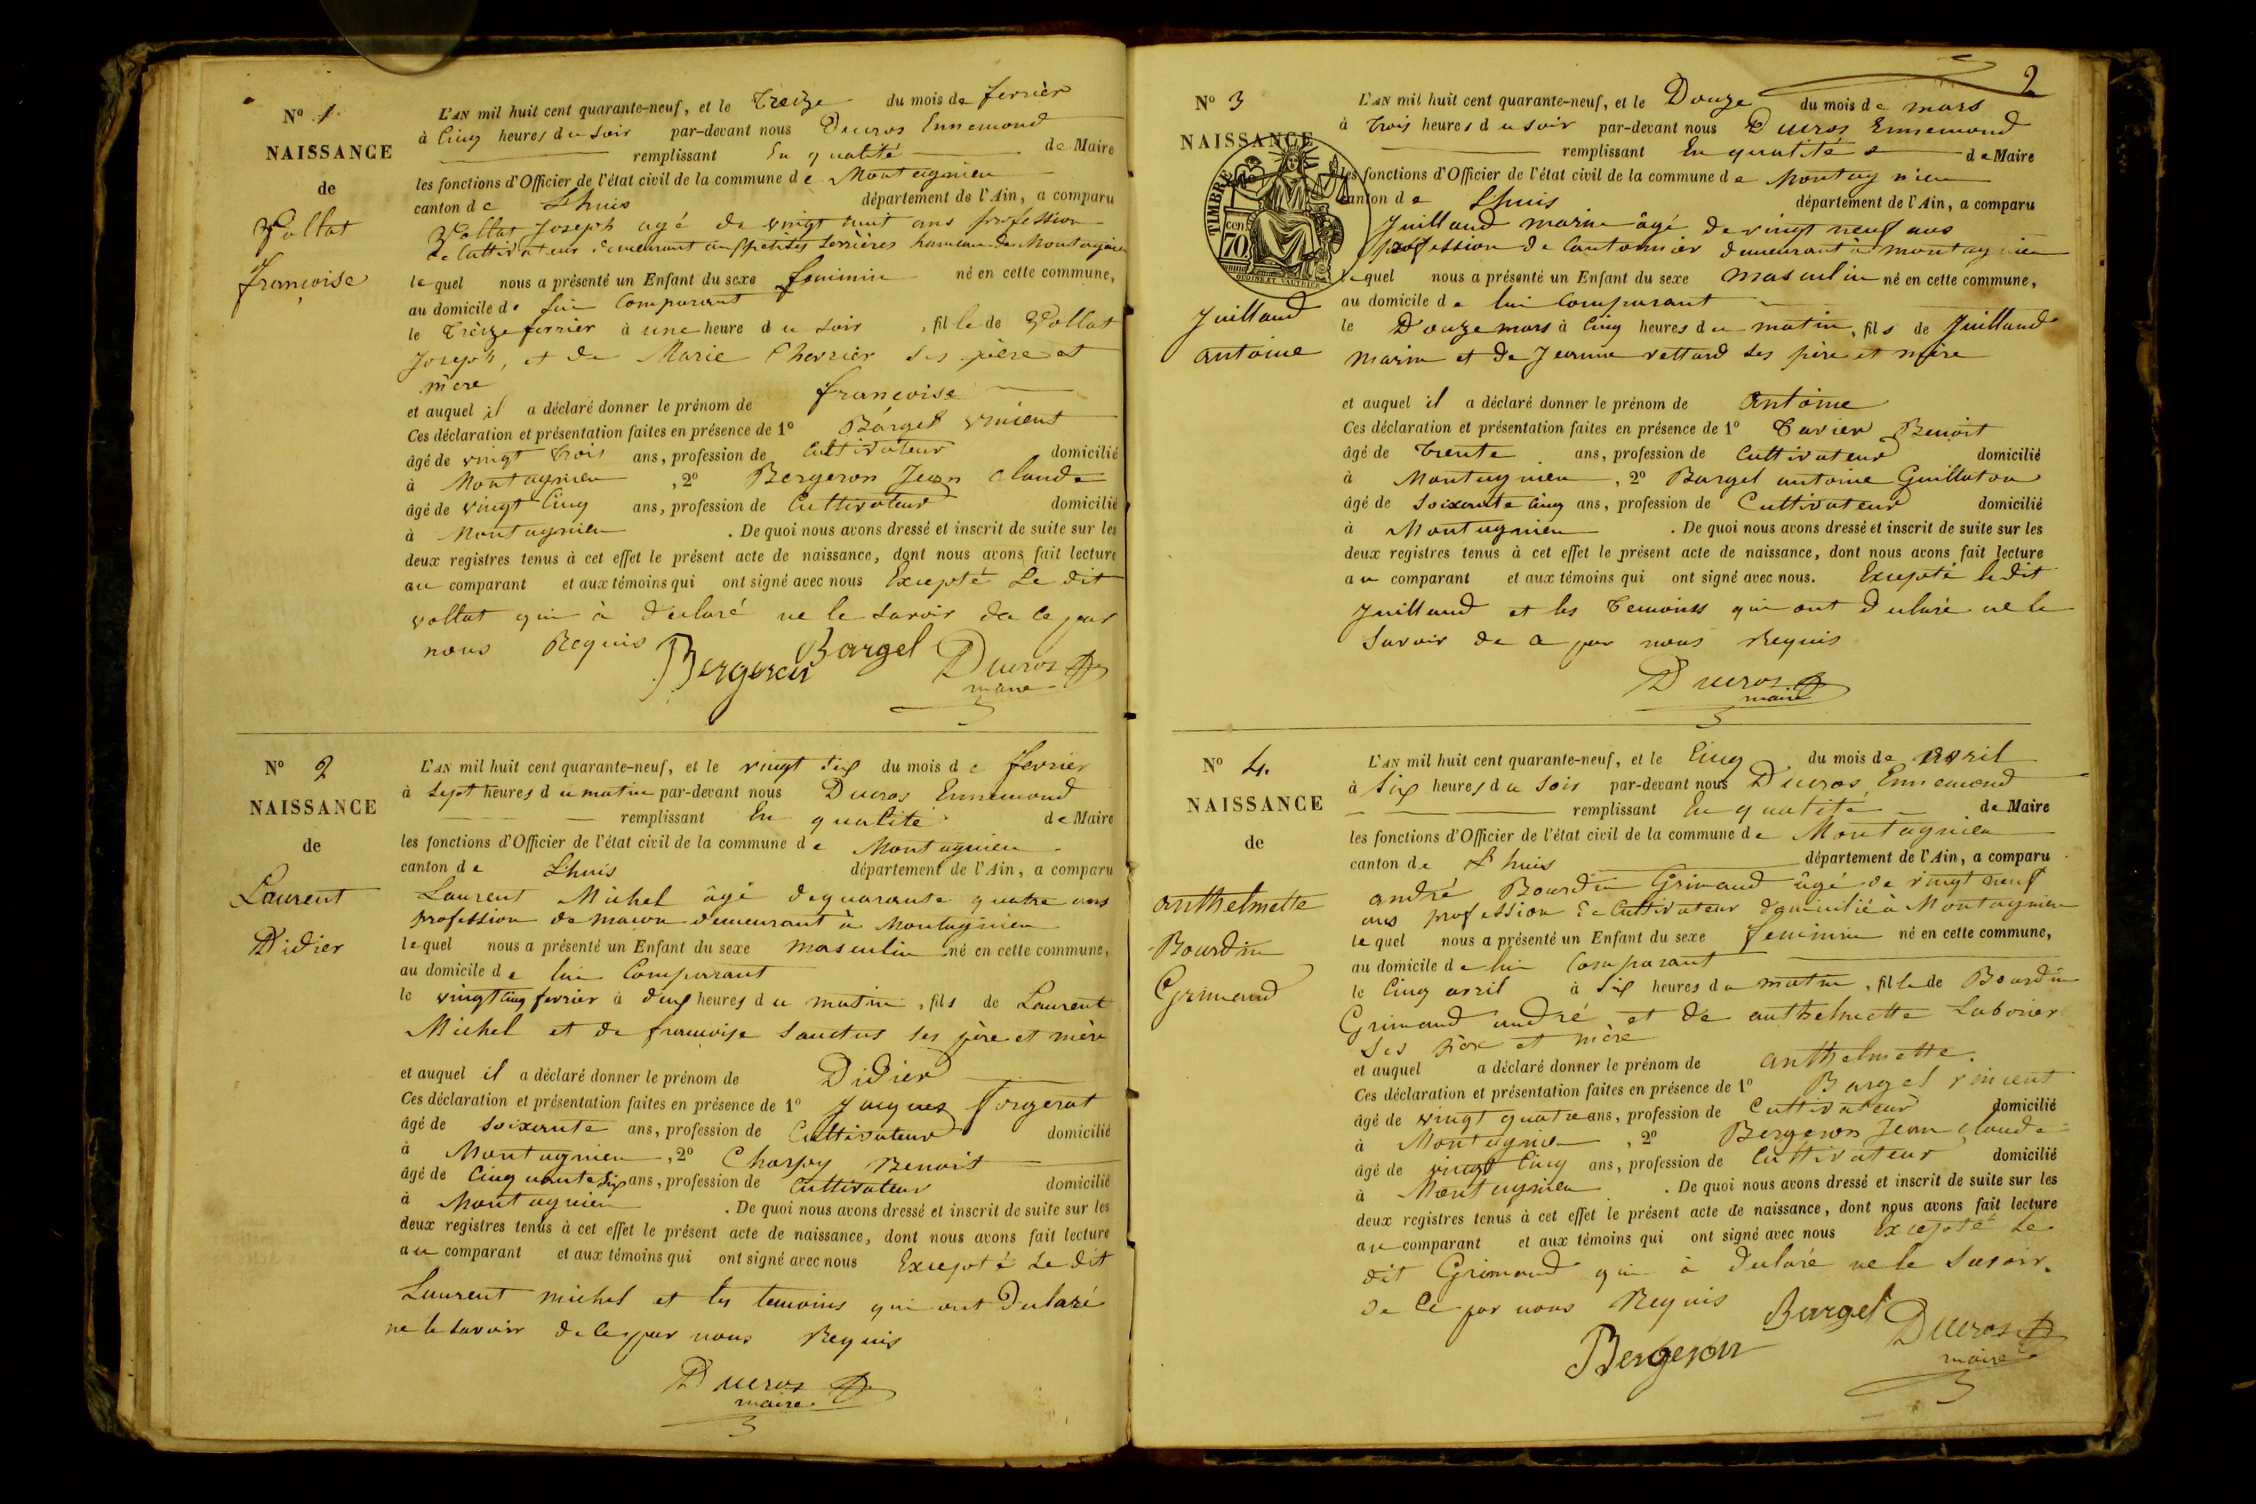 N° 1.
NAISSANCE
de
Vollat
françoise
L'AN mil huit cent quarante-neuf, et le Treize du mois de fevrièr
à Cinq heures du soir par-devant nous Ducros Ennemond
remplissant En qualité de Maire
les fonctions d'Officier de l'état civil de la commune de Montagnieu
canton de Lhuis département de l'Ain, a comparu
Vollat Joseph agé de vingt huit ans profession
de Cultivateur demeurant aux petites Serrières hameau de Montagnieu
lequel nous a présenté un Enfant du sexe feminin né en cette commune,
au domicile de lui Comparant
le Trèize fevrier à une heure du soir, fille de Vollat
Joseph, et de Marie Chevrier ses père et
mère
et auquel il a déclaré donner le prénom de françoise
Ces déclaration et présentation faites en présence de 1° Bargel vincent
âgé de vingt trois ans, profession de Cultivateur domicilié
à Montagnieu, 2° Bergeron Jean Claude
âgé de vingt Cinq ans, profession de Cultivateur domicilié
à Montagnieu. De quoi nous avons dressé et inscrit de suite sur les
deux registres tenus à cet effet le présent acte de naissance, dont nous avons fait lecture
au comparant et aux témoins qui ont signé avec nous Excepté Le dit
vollat qui à declaré ne le savoir de Ce par
nous Requis
Bergeron Bargel Ducros
maire
N° 2
NAISSANCE
de
Laurent
Didier
L'AN mil huit cent quarante-neuf, et le vingt six du mois de fevrier
à Sept heures du matin par-devant nous Ducros Ennemond
remplissant En qualité de Maire
les fonctions d'Officier de l'état civil de la commune de Montagnieu
canton de Lhuis département de l'Ain, a comparu
Laurent Michel âgé de quarante quatre ans
profession de maçon demeurant à Montagnieu
lequel nous a présenté un Enfant du sexe masculin né en cette commune,
au domicile de lui Comparant
le vingt Cinq fevrier à dix heures du matin, fils de Laurent
Michel et de françoise Sanctus ses père et mère
et auquel il a déclaré donner le prénom de Didier
Ces déclaration et présentation faites en présence de 1° Jacques forgerat
âgé de Soixante ans, profession de Cultivateur domicilié
à Montagnieu, 2° Charpy Benoit
âgé de Cinquante six ans, profession de Cultivateur domicilié
à Montagnieu. De quoi nous avons dressé et inscrit de suite sur les
deux registres tenus à cet effet le présent acte de naissance, dont nous avons fait lecture
au comparant et aux témoins qui ont signé avec nous Excepté Le dit
Laurent michel et les temoins qui ont declaré
ne le savoir de Ce par nous Requis
Ducros
maire
2
N° 3
NAISSANCE
TIMBRE
cen 70
Juilland
antoine
L'AN mil huit cent quarante-neuf, et le Douze du mois de mars
à trois heures du soir par-devant nous Ducros Ennemond
remplissant En qualité de Maire
les fonctions d'Officier de l'état civil de la commune de Montagnieu
canton de Lhuis département de l'Ain, a comparu
Juilland marin âgé de vingt neuf ans
profession de Cantonnier demeurant à montagnieu
lequel nous a présenté un Enfant du sexe masculin né en cette commune,
au domicile de lui Comparant
le Douze mars à Cinq heures du matin, fils de Juilland
marin et de Jeanne rettard ses père et mère
et auquel il a déclaré donner le prénom de Antoine
Ces déclaration et présentation faites en présence de 1° Tavier Benoit
âgé de trente ans, profession de Cultivateur domicilié
à Montagnieu, 2° Bargel antoine Guillaton
âgé de Soixante Cinq ans, profession de Cultivateur domicilié
à Montagnieu. De quoi nous avons dressé et inscrit de suite sur les
deux registres tenus à cet effet le présent acte de naissance, dont nous avons fait lecture
au comparant et aux témoins qui ont signé avec nous. Excepté le dit
Juilland et les temoins qui ont declaré ne le
savoir de Ce par nous Requis
Ducros
maire
N° 4.
NAISSANCE
de
anthelmette
Bourdin
Grimand
L'AN mil huit cent quarante-neuf, et le Cinq du mois de avril
à Six heures du soir par-devant nous Ducros Ennemond
remplissant En qualité de Maire
les fonctions d'Officier de l'état civil de la commune de Montagnieu
canton de Lhuis département de l'Ain, a comparu
andré Bourdin Grimand âgé de vingt neuf
ans profession de Cultivateur domicilié à Montagnieu
lequel nous a présenté un Enfant du sexe feminin né en cette commune,
au domicile de lui Comparant
le Cinq avril à Six heures du matin, fille de Bourdin
Grimand andré et de anthelmette Laborier
ses père et mère
et auquel a déclaré donner le prénom de anthelmette.
Ces déclaration et présentation faites en présence de 1° Bargel vincent
âgé de vingt quatre ans, profession de Cultivateur domicilié
à Montagnieu, 2° Bergeron Jean Claude
âgé de vingt Cinq ans, profession de Cultivateur domicilié
à Montagnieu. De quoi nous avons dressé et inscrit de suite sur les
deux registres tenus à cet effet le présent acte de naissance, dont nous avons fait lecture
au comparant et aux témoins qui ont signé avec nous Excepté Le
dit Grimand qui à declaré ne le savoir.
de Ce par nous Requis
Bergeron Bargel Ducros
maire